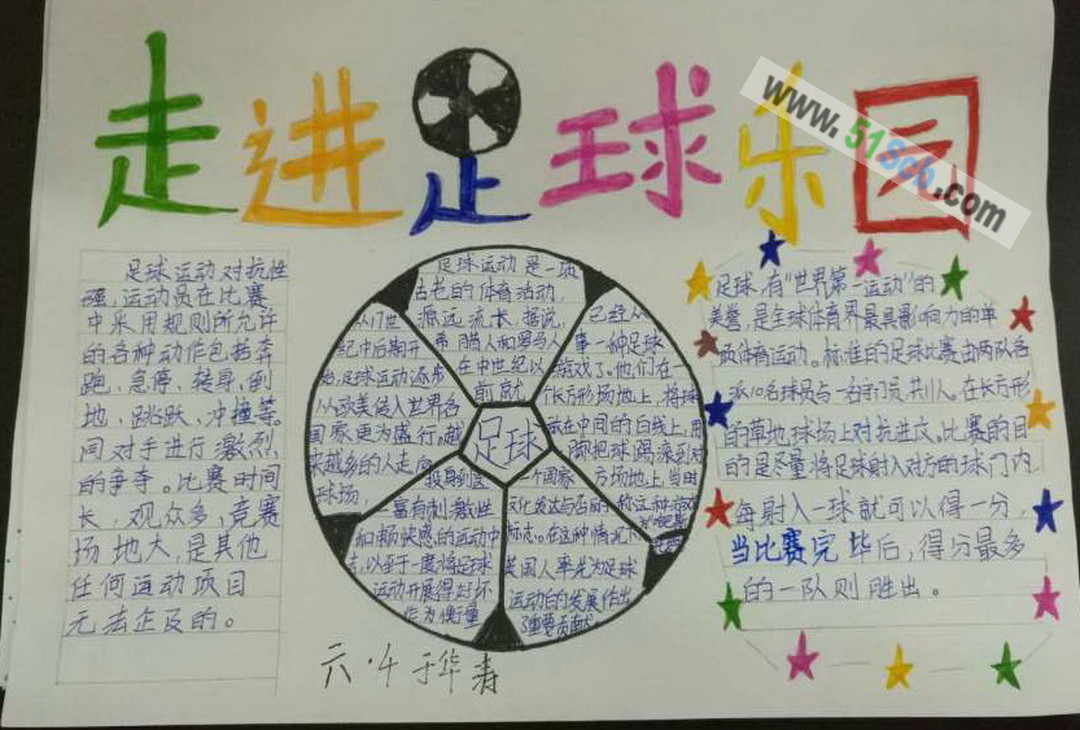 走进足球乐园
www.51Scb.com
足球运动对抗性
强，运动员在比赛
中采用规则所允许
的各种动作包括奔
跑、急停、转身、倒
地、跳跃、冲撞等。
同对手进行激烈
的争夺。比赛时间
长，观众多，竞赛
场地大，是其他
任何运动项目
无法企及的。
足球运动是一项
古老的体育活动，
源远流长，据说，
希腊人和罗马人
在中世纪以
前就
已经从
事一种足球
游戏了。他们在一
个长方形场地上，将球
放在中间的白线上，用
脚把球踢滚到对
方场地上，当时
称这种游戏
从17世
纪中后期开
始，足球运动逐步
从欧美传入世界各
国家更为盛行。越
来越多的人走向
球场，
足球
投身到这
一富有刺激性
和畅快感的运动中
去，以至于一度将足球
运动开展得好坏
作为衡量
一个国家
文化发达与否的
标志。在这种情况下
英国人率先为足球
运动的发展作出
了重要贡献
足球，有“世界第一运动”的
美誉，是全球体育界最具影响力的单
项体育运动。标准的足球比赛由两队各
派10名球员与一名守门员，共11人。在长方形
的草地球场上对抗进攻。比赛的目
的是尽量将足球射入对方的球门内，
每射入一球就可以得一分，
当比赛完毕后，得分最多
的一队则胜出。
六·4 于华寿